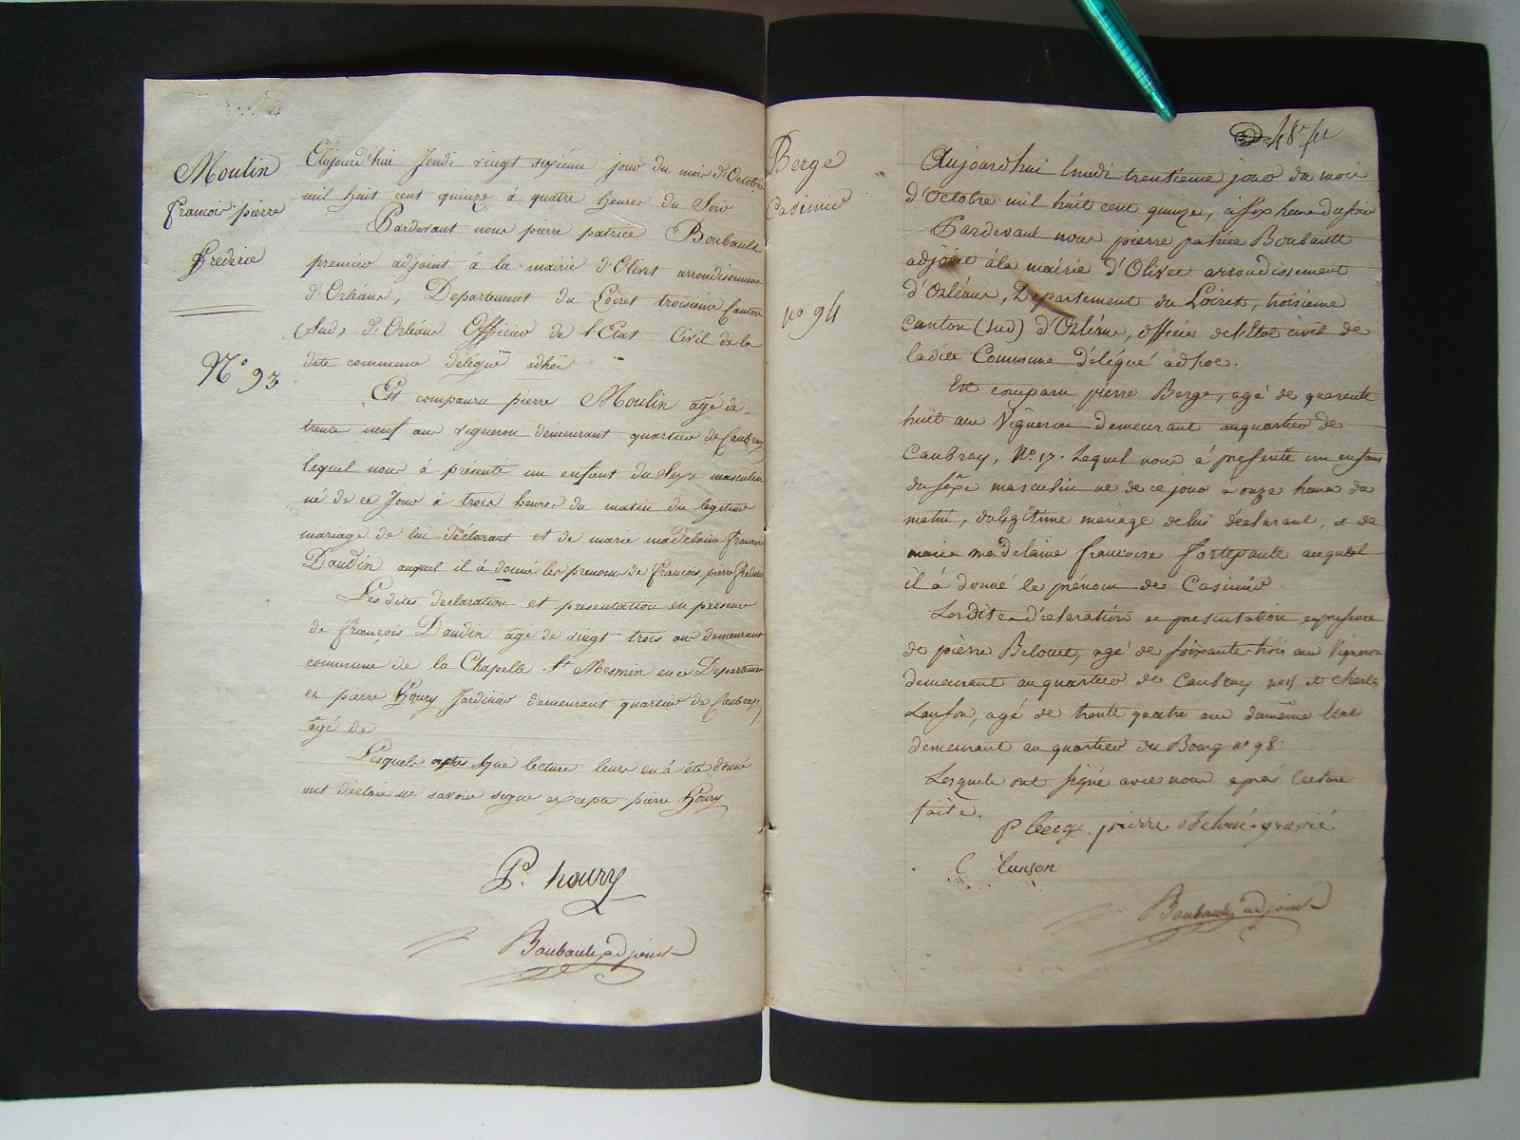 Moulin
françois pierre
frederic
N° 93
Aujourd'hui Jeudi vingt sixieme jour du mois d'Octobre
mil huit cent quinze à quatre heures du Soir
Pardevant nous pierre patrice Boubault
premier adjoint à la mairie d'Olivet arrondissement
d'Orléans, Departement du Loiret troisieme Canton
(Sud) d'Orléans Officier de l'Etat Civil de la
dite commune délégué adhoc
Est comparu pierre Moulin agé de
trente neuf ans vigneron demeurant quartier de Caubray
lequel nous à présenté un enfant du sexe masculin
né de ce Jour à trois heures du matin du legitime
mariage de lui déclarant et de marie madelaine françoise
Daudin auquel il à donné les prenoms de françois pierre frederic
Les dites declaration et presentation en presence
de françois Daudin agé de vingt trois ans demeurant
commune de la Chapelle St Mesmin en ce Departement
et pierre Houry Jardinier demeurant quartier de Caubray
agé de
Lesquels après que lecture leurs en à été donné
ont déclaré ne savoir signer excepté pierre Houry
P. houry
Boubault adjoint
48
Berge
Casimir
no 94
Aujourdhui lundi trentieme jour du mois
d'Octobre mil huit cent quinze, à six heures du soir
Pardevant nous pierre patrice Boubault
adjoint à la mairie d'Olivet arrondissement
d'Orléans, Departement du Loiret, troisieme
Canton (sud) d'Orléans, officier de l'Etat civil de
ladite Commune délégué adhoc.
Est comparu pierre Berge, agé de quarente
huit ans Vigneron demeurant auquartier de
Caubray, No. 17. Lequel nous à presenté un enfant
du sexe masculin né de ce jour à onze heures du
matin, du legitime mariage de lui déclarant, et de
marie madelaine francoise auquel
il à donné le prénom de Casimir
Lesdites déclaration et presentation en presence
de pierre Beloué, agé de soixante-trois ans Vigneron
demeurant auquartier de Caubray et charles
Lanson, agé de trente quatre ans du même état
demeurant au quartier du Bourg no 98.
Lesquels ont signé avec nous après lecture
faite.
P Berge pierre Beloué
C Lanson
Boubault adjoint